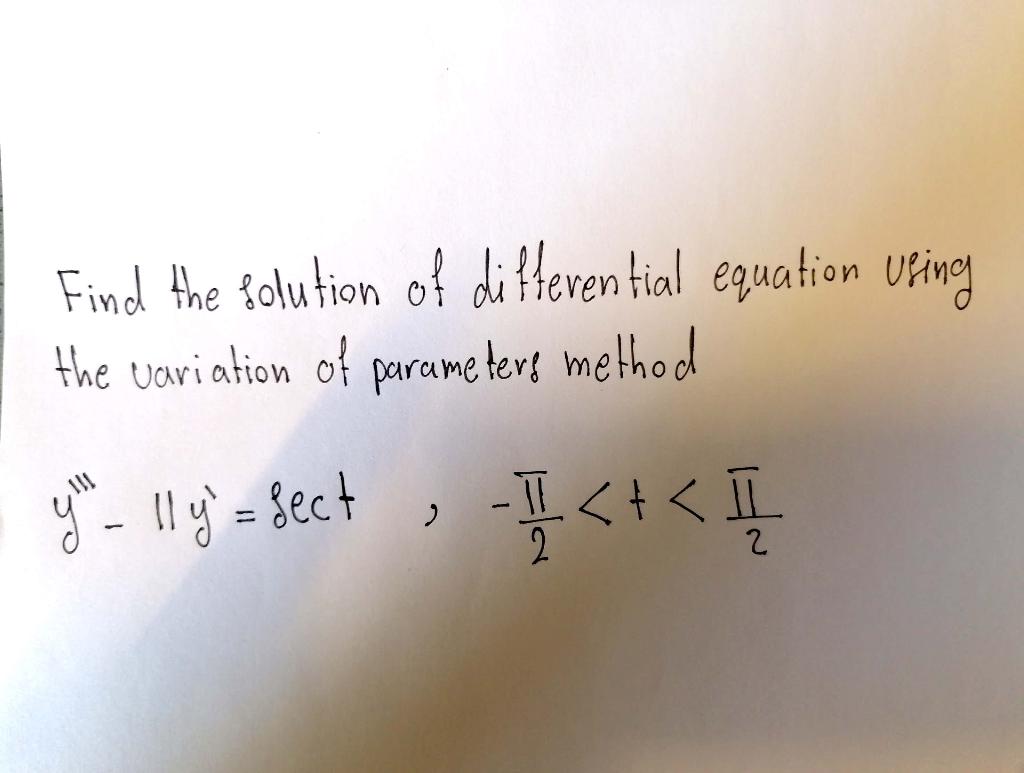 Find the solution of differential equation using
the variation of parameters method
y''' - 11y' = sec t , -π/2 < t < π/2